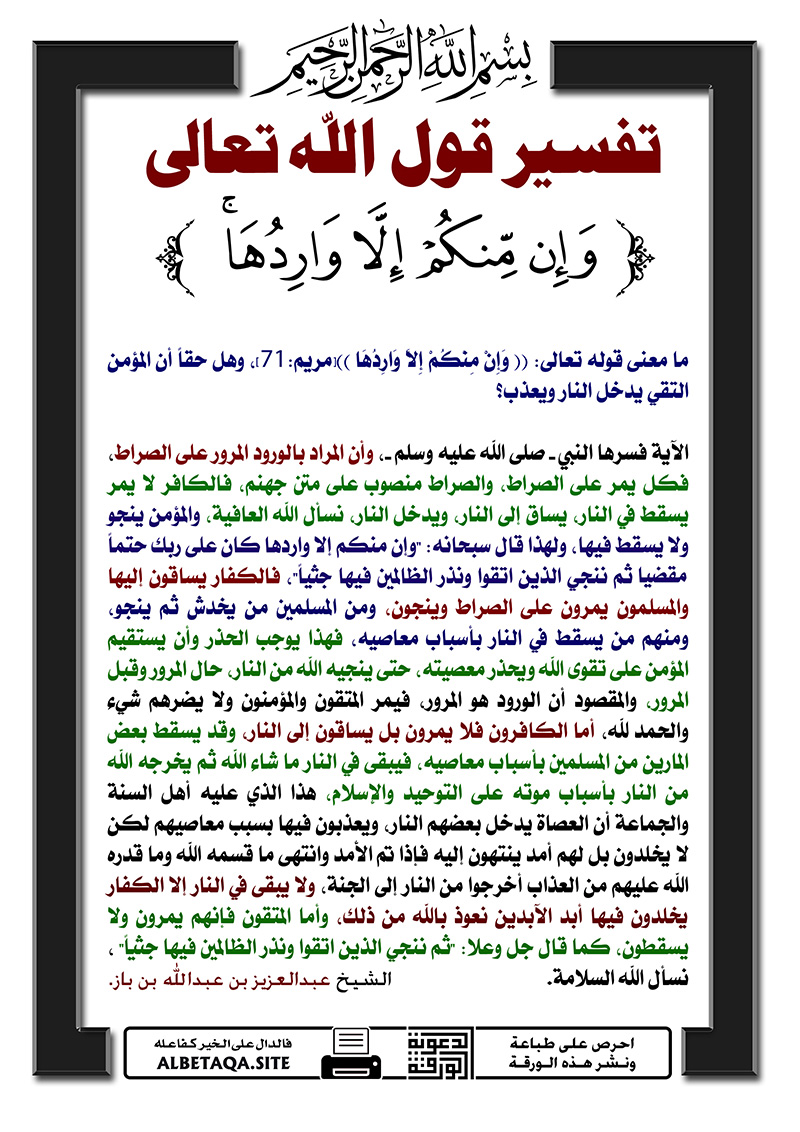 بِسْمِ اللَّهِ الرَّحْمَنِ الرَّحِيمِ
تفسير قول الله تعالى
﴿ وَإِن مِّنكُمْ إِلَّا وَارِدُهَا ۚ ﴾
ما معنى قوله تعالى: (( وَإِنْ مِنكُمْ إِلاَّ وَارِدُهَا ))[مريم:71]، وهل حقاً أن المؤمن
التقي يدخل النار ويعذب؟
الآية فسرها النبي ـ صلى الله عليه وسلم ـ، وأن المراد بالورود المرور على الصراط،
فكل يمر على الصراط، والصراط منصوب على متن جهنم، فالكافر لا يمر
يسقط في النار، يساق إلى النار، ويدخل النار، نسأل الله العافية، والمؤمن ينجو
ولا يسقط فيها، ولهذا قال سبحانه: "وإن منكم إلا واردها كان على ربك حتماً
مقضيا ثم ننجي الذين اتقوا ونذر الظالمين فيها جثياً"، فالكفار يساقون إليها
والمسلمون يمرون على الصراط وينجون، ومن المسلمين من يخدش ثم ينجو،
ومنهم من يسقط في النار بأسباب معاصيه، فهذا يوجب الحذر وأن يستقيم
المؤمن على تقوى الله ويحذر معصيته، حتى ينجيه الله من النار، حال المرور وقبل
المرور، والمقصود أن الورود هو المرور، فيمر المتقون والمؤمنون ولا يضرهم شيء
والحمد لله، أما الكافرون فلا يمرون بل يساقون إلى النار، وقد يسقط بعض
المارين من المسلمين بأسباب معاصيه، فيبقى في النار ما شاء الله ثم يخرجه الله
من النار بأسباب موته على التوحيد والإسلام، هذا الذي عليه أهل السنة
والجماعة أن العصاة يدخل بعضهم النار، ويعذبون فيها بسبب معاصيهم لكن
لا يخلدون بل لهم أمد ينتهون إليه فإذا تم الأمد وانتهى ما قسمه الله وما قدره
الله عليهم من العذاب أخرجوا من النار إلى الجنة، ولا يبقى في النار إلا الكفار
يخلدون فيها أبد الآبدين نعوذ بالله من ذلك، وأما المتقون فإنهم يمرون ولا
يسقطون، كما قال جل وعلا: "ثم ننجي الذين اتقوا ونذر الظالمين فيها جثياً" ،
نسأل الله السلامة. الشيخ عبدالعزيز بن عبدالله بن باز.
احرص على طباعة
ونشر هذه الورقة
الورقة
الدعوية
فالدال على الخير كفاعله
ALBETAQA.SITE